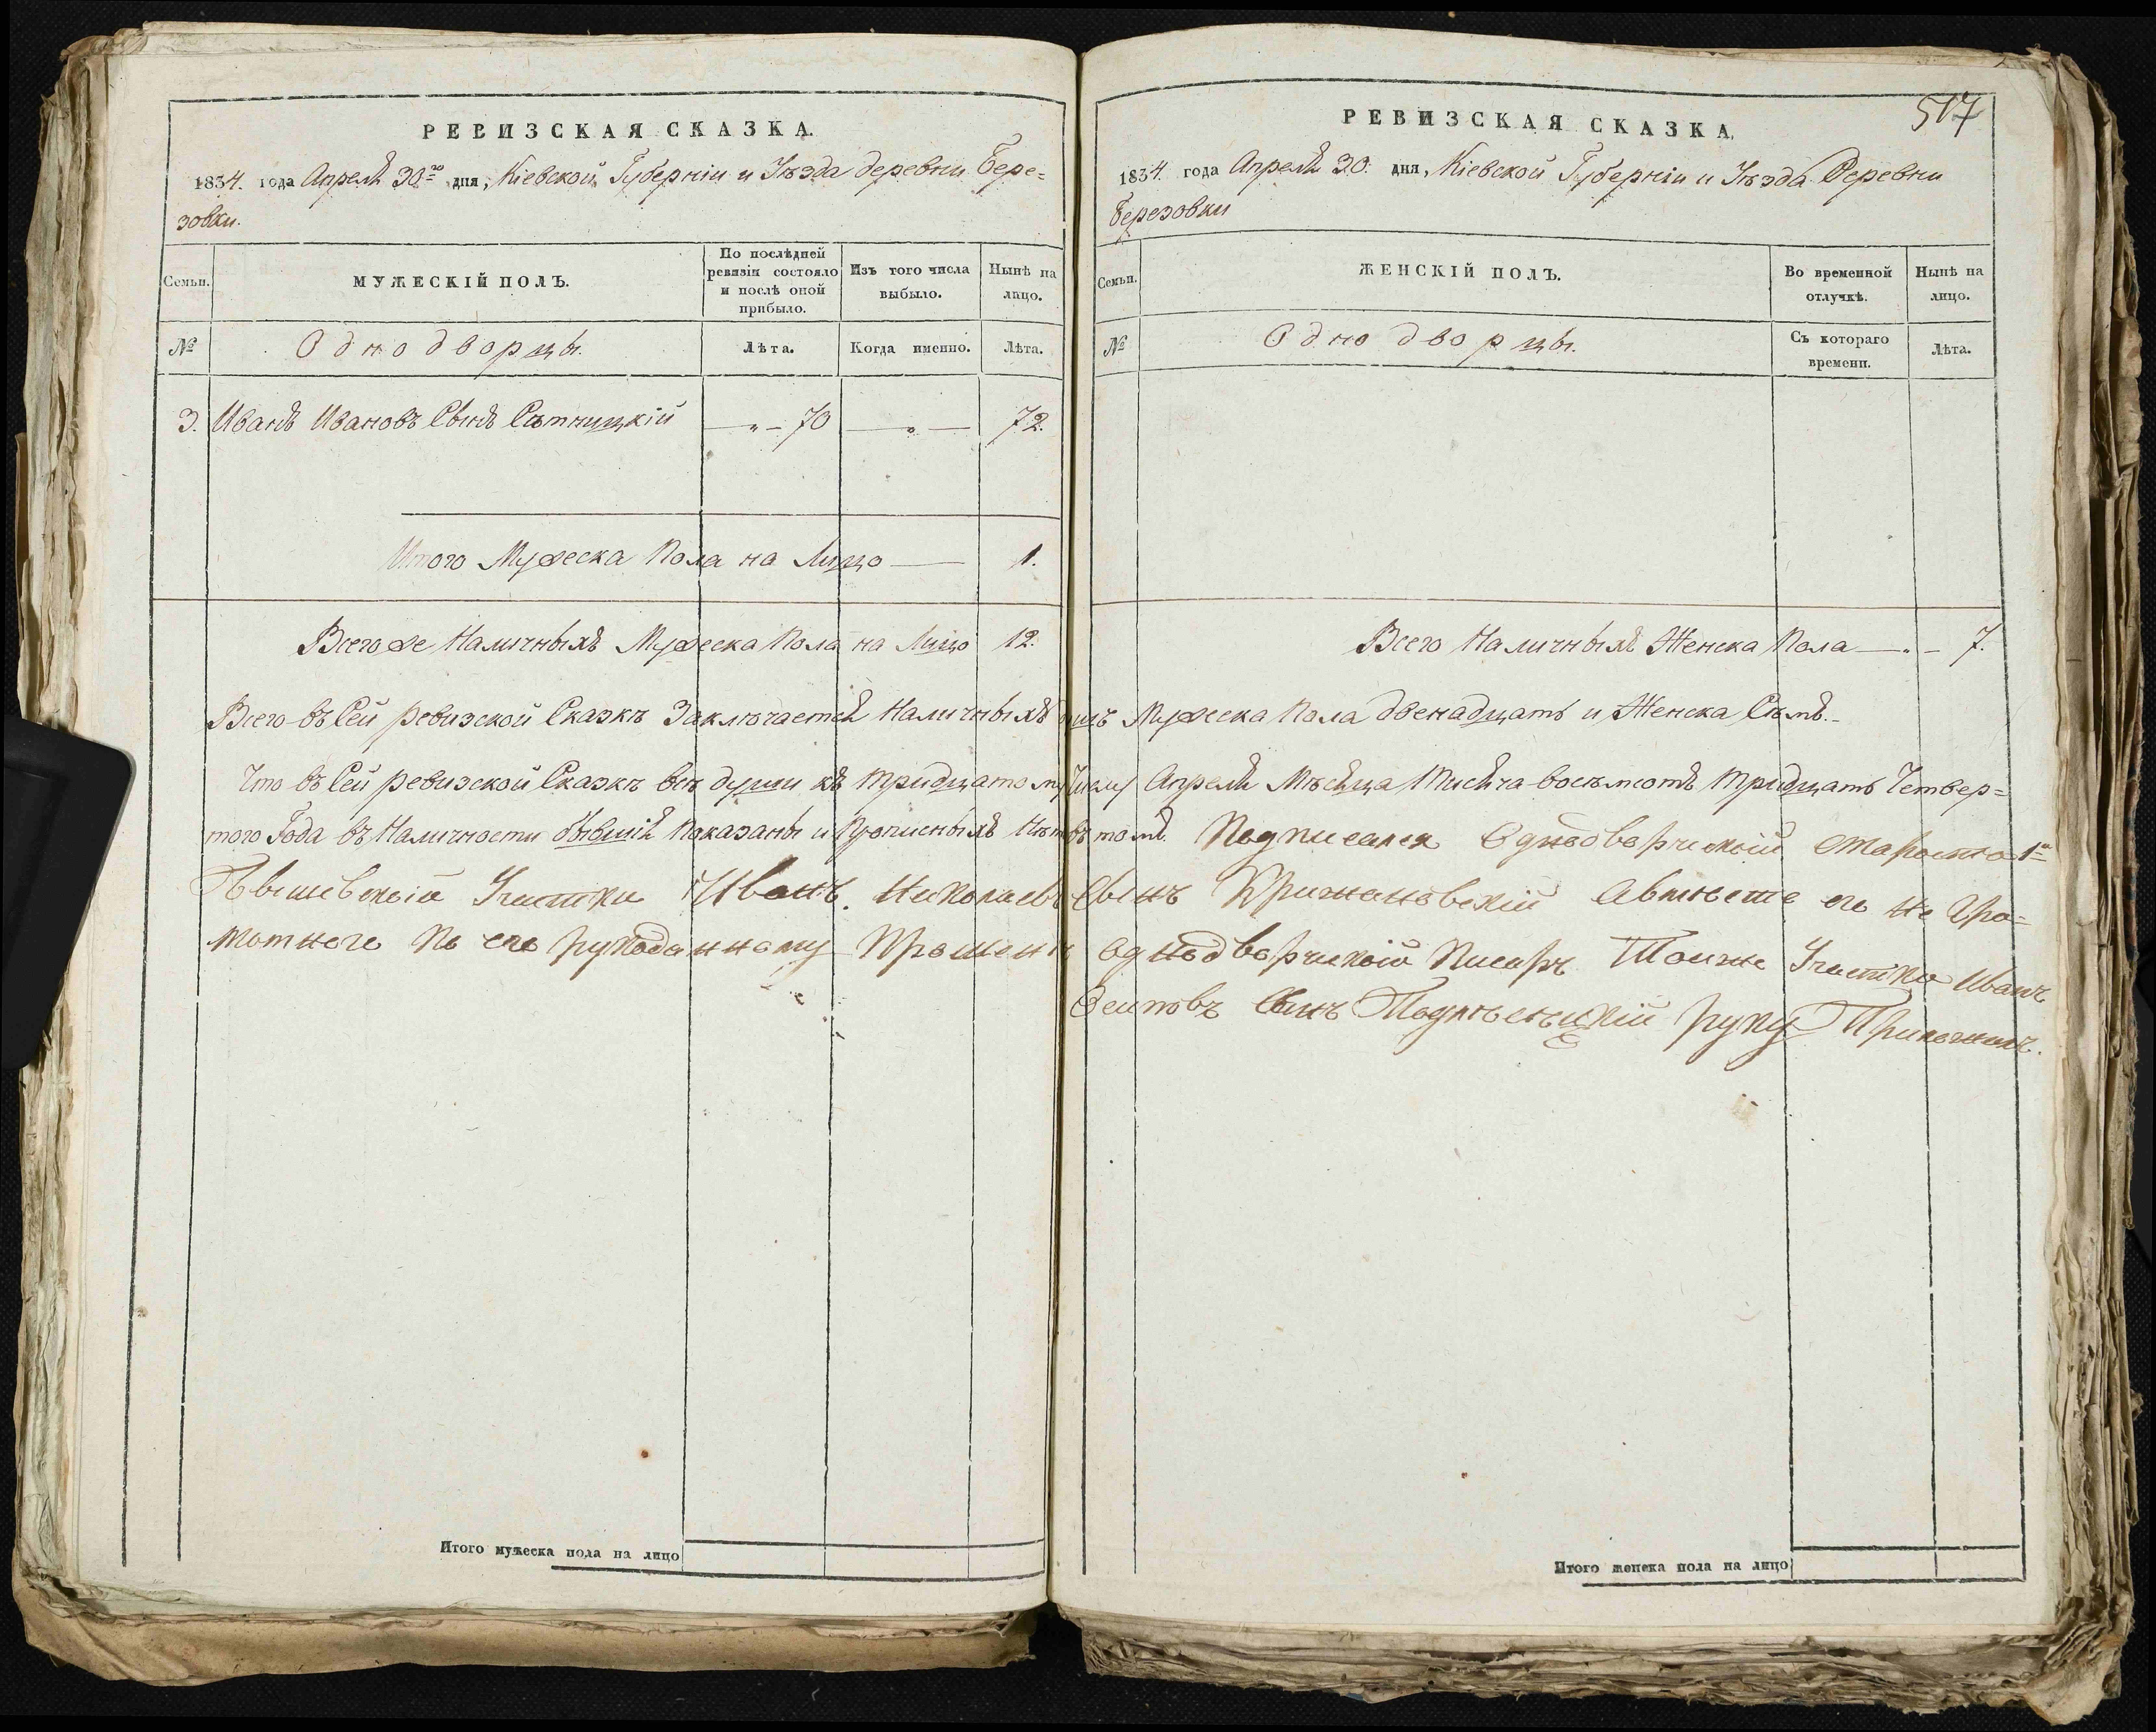 РЕВИЗСКАЯ СКАЗКА.
1834. года Апреля 30го дня, Кіевской Губерніи и Уѣзда деревни Бере=
зовки.
Семьи.
МУЖЕСКІЙ ПОЛЪ.
По послѣдней ревизіи состояло и послѣ оной прибыло.
Изъ того числа выбыло.
Нынѣ на лицо.
№
Однодворцы.
Лѣта.
Когда именно.
Лѣта.
3. Иванъ Ивановъ Сынъ Сѣтницкій — „ — 70 — „ — 72.
Итого Мужеска Пола на Лицо — 1.
Всего же Наличныхъ Мужеска Пола на Лицо 12.
РЕВИЗСКАЯ СКАЗКА.
517
1834. года Апреля 30: дня, Кіевской Губерніи и Уѣзда Деревни
Березовки
Семьи.
ЖЕНСКІЙ ПОЛЪ.
Во временной отлучкѣ.
Нынѣ на лицо.
№
Однодворцы.
Съ котораго времени.
Лѣта.
Всего Наличныхъ Женска Пола — „ — 7.
Всего въ Сей ревизской Сказкѣ Заключается Наличныхъ Мужеска Пола двенадцать и Женска Семъ.
Что въ Сей ревизской Сказкѣ всѣ души къ тридцатому Числу Апреля Мѣсяца Тисяча восемсотъ тридцать Четвер=
того Года въ Наличности бывшія показаны и Прописныхъ Нѣтъ въ томъ. Подписался Однодворческій Староста 1го
Участка Иванъ Николаевъ Сынъ Крижановскій Авместо его не Гра=
мотнаго По его рукоданному Прошенію однодворческій Писарь Тоиже Участка Иванъ
Осиповъ Сынъ руку Приложилъ.
Итого мужеска пола на лицо
Итого женска пола на лицо